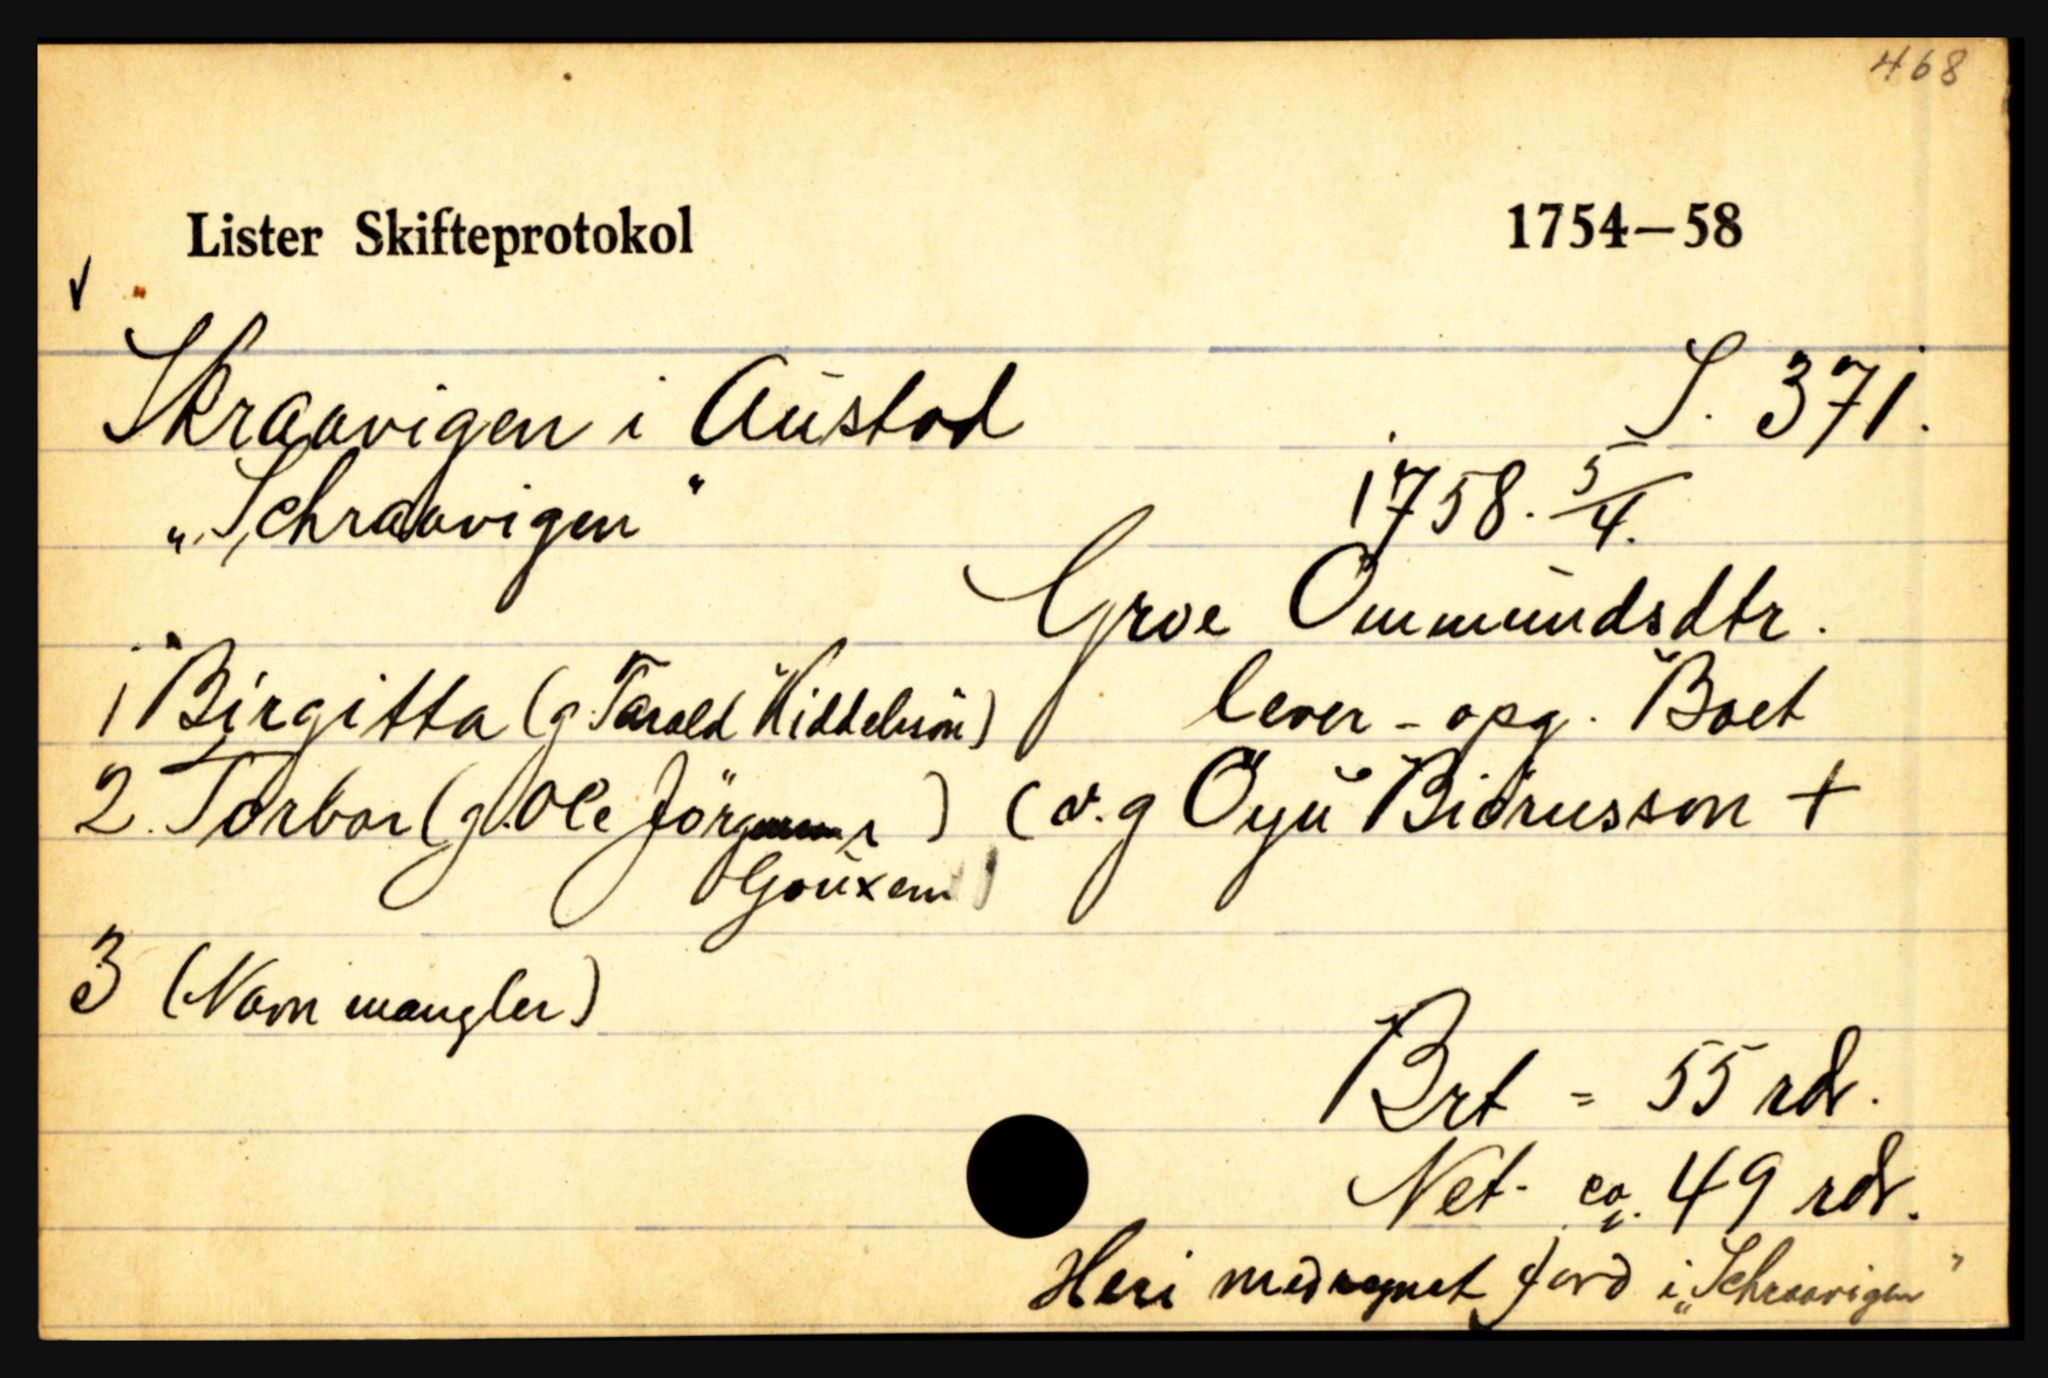 468
Lister Skifteprotokol 1754—58
Skraavigen i Austad S. 371.
"Schraavigen" 1758. 5/4.
Groe Ommundsdtr.
1 Birgitta (g. Tarald Kiddelsøn) lever - opg. Boet
2. Torbor (g. Ole Jörgensen) (v. g Öyu Biörnsson +
3 (Navn mangler)
Brt = 55 rdr.
Net - ca. 49 rdr.
Heri medregnet Jord i "Schraavigen"